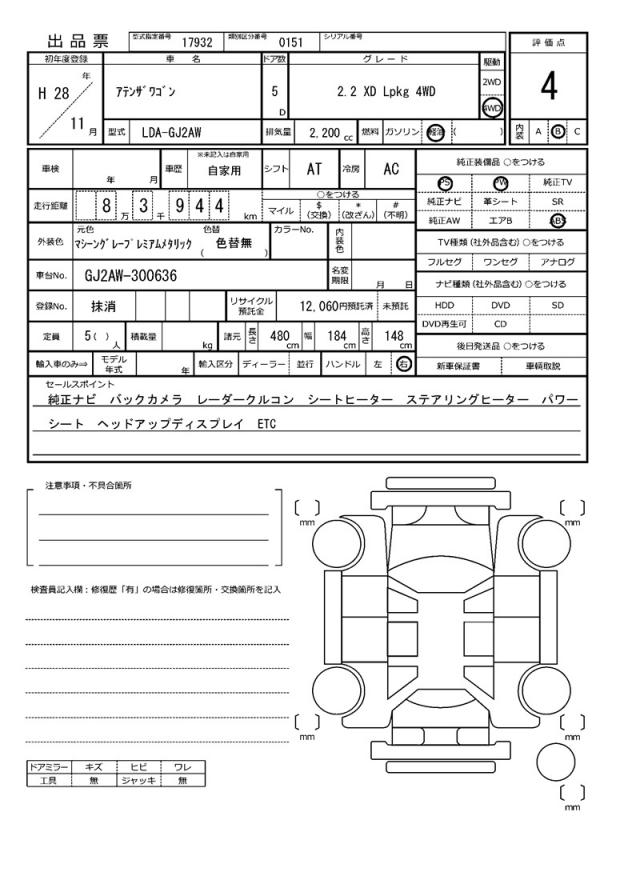 出品票 型式指定番号 17932 類別区分番号 0151 シリアル番号
評価点
4
内装 A B C
初年度登録 車名 ドア数 グレード 駆動
H 28 年 11 月
ｱﾃﾝｻﾞﾜｺﾞﾝ
5 D
2.2 XD Lpkg 4WD
2WD
4WD
型式 LDA-GJ2AW 排気量 2,200 cc 燃料 ガソリン 軽油 ( )
車検 年 月 車歴 ※未記入は自家用 自家用 シフト AT 冷房 AC
走行距離 8 万 3 千 9 4 4 km
○をつける
マイル $(交換) *(改ざん) #(不明)
外装色 元色 ﾏｼｰﾝｸﾞﾚｰﾌﾟﾚﾐｱﾑﾒﾀﾘｯｸ 色替 ( 色替無 ) カラーNo. 内装色
車台No. GJ2AW-300636 名変期限 月 日
登録No. 抹消 リサイクル預託金 12,060円預託済 未預託
定員 5( ) 人 積載量 kg 諸元 長さ 480 cm 幅 184 cm 高さ 148 cm
輸入車のみ⇒ モデル年式 年 輸入区分 ディーラー 並行 ハンドル 左 右
純正装備品 ○をつける
PS PW 純正TV
純正ナビ 革シート SR
純正AW エアB ABS
TV種類 (社外品含む) ○をつける
フルセグ ワンセグ アナログ
ナビ種類 (社外品含む) ○をつける
HDD DVD SD
DVD再生可 CD
後日発送品 ○をつける
新車保証書 車輌取説
セールスポイント
純正ナビ バックカメラ レーダークルコン シートヒーター ステアリングヒーター パワー
シート ヘッドアップディスプレイ ETC
注意事項・不具合箇所
検査員記入欄：修復歴「有」の場合は修復箇所・交換箇所を記入
ドアミラー キズ ヒビ ワレ
工具 無 ジャッキ 無
mm
mm
mm
mm
mm